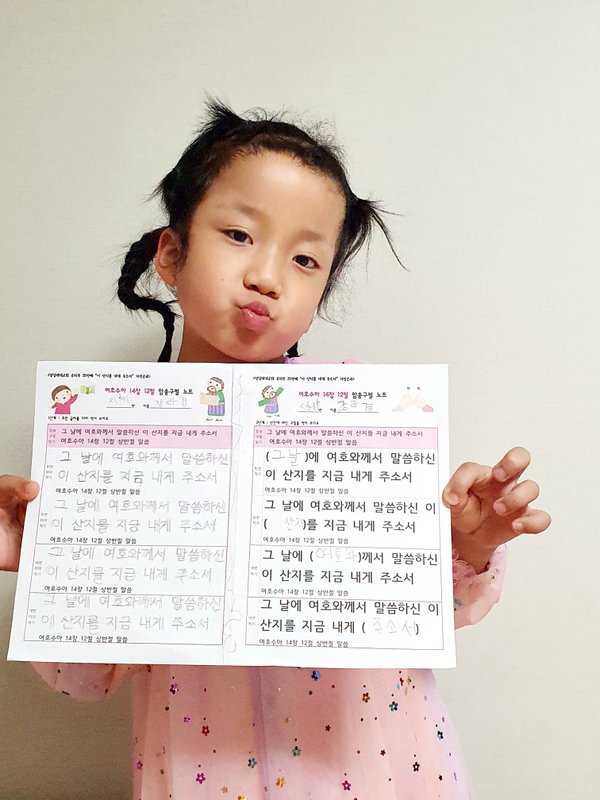 여호수아 14장 12절 암송구절 노트
그 날에 여호와께서 말씀하신 이 산지를 지금 내게 주소서
여호수아 14장 12절 상반절 말씀
그 날에 여호와께서 말씀하신
이 산지를 지금 내게 주소서
여호수아 14장 12절 상반절 말씀
그 날에 여호와께서 말씀하신
이 산지를 지금 내게 주소서
여호수아 14장 12절 상반절 말씀
그 날에 여호와께서 말씀하신
이 산지를 지금 내게 주소서
여호수아 14장 12절 상반절 말씀
그 날에 여호와께서 말씀하신
이 산지를 지금 내게 주소서
여호수아 14장 12절 상반절 말씀
여호수아 14장 12절 암송구절 노트
그 날에 여호와께서 말씀하신 이 산지를 지금 내게 주소서
여호수아 14장 12절 상반절 말씀
(그 날)에 여호와께서 말씀하신
이 산지를 지금 내게 주소서
여호수아 14장 12절 상반절 말씀
그 날에 여호와께서 말씀하신 이
( 산지)를 지금 내게 주소서
여호수아 14장 12절 상반절 말씀
그 날에 (여호와)께서 말씀하신
이 산지를 지금 내게 주소서
여호수아 14장 12절 상반절 말씀
그 날에 여호와께서 말씀하신 이
산지를 지금 내게 ( 주소서)
여호수아 14장 12절 상반절 말씀